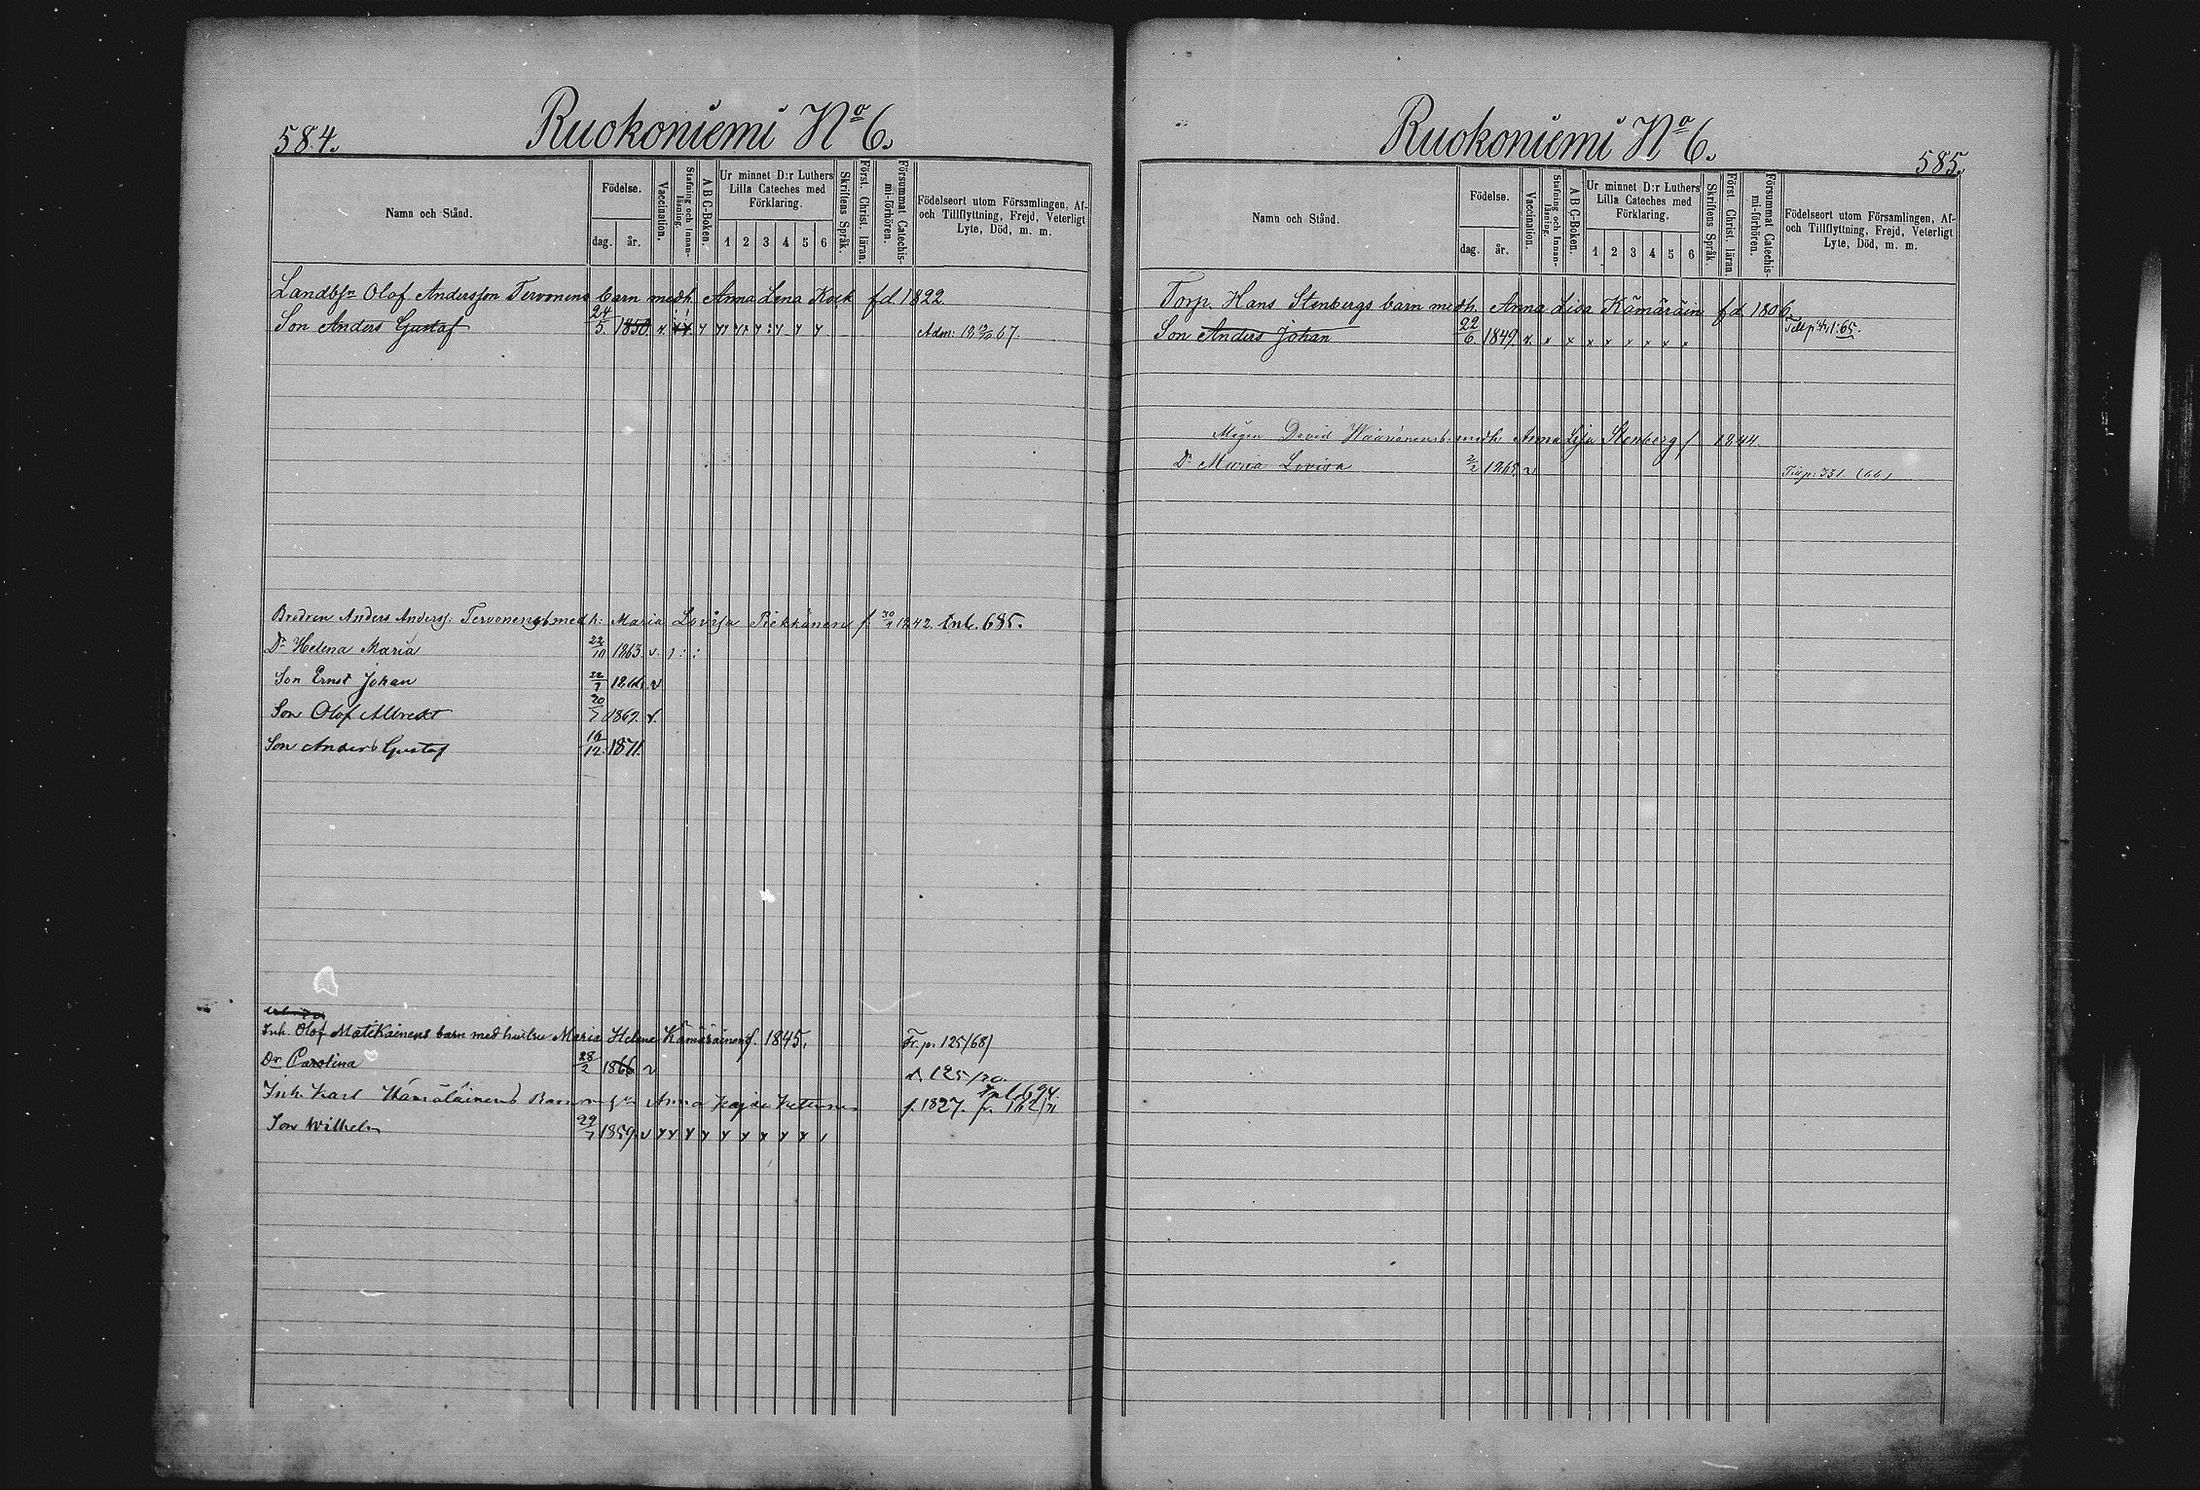 584.
Ruokoniemi No 6.
Namn och Stånd.
Födelse.
dag.
år.
Vaccination.
Stafning och Innan-läsning.
A B C-Boken.
Ur minnet D:r Luthers Lilla Cateches med Förklaring.
1 2 3 4 5 6
Skriftens Språk.
Först. Christ. läran.
Försummat Catechis-mi-förhören.
Födelseort utom Församlingen, Af-
och Tillflyttning, Frejd, Veterligt
Lyte, Död, m. m.
Landbsn Olof Andersson Tervonens barn medh. Anna Lena Kock fd 1822
Son Anders Gustaf 24/5 1850 Adm: 67.
Brodren Anders Anderss: Tervonens b medh: Maria Lovisa Piekkänen f. 1842. Inl. 685.
Dr Helena Maria 22/10 1863
Son Ernst Johan
Son Olof Albrekt 20/7 1869
Son Anders Gustaf 16/12 1871.
Inh. Olof Matikainens barn med hustru Maria Helena Kämäräinen f. 1845, Fr. p. 125/68)
Dr Carolina 28/2 1866 125/70.
Inh. Karl Hämäläinens Barn m hn Anna f. 1827. fr. 162/71 Inl. 694.
Son Wilhelm 29/7 1859
585.
Ruokoniemi No 6.
Namn och Stånd.
Födelse.
dag.
år.
Vaccination.
Stafning och Innan-läsning.
A B C-Boken.
Ur minnet D:r Luthers Lilla Cateches med Förklaring.
1 2 3 4 5 6
Skriftens Språk
Först. Christ. läran
Försummat Catechis-mi-förhören.
Födelseort utom Församlingen, Af-
och Tillflyttning, Frejd, Veterligt
Lyte, Död, m. m.
Torp. Hans Stenbergs barn medh. Anna Lisa Kämäräin fd. 1806.
Son Anders Johan 22/6 1849
Mågen David b. medh Anna Lisa Stenberg f 1844
Dr Maria Lovisa 1865 331 (66)